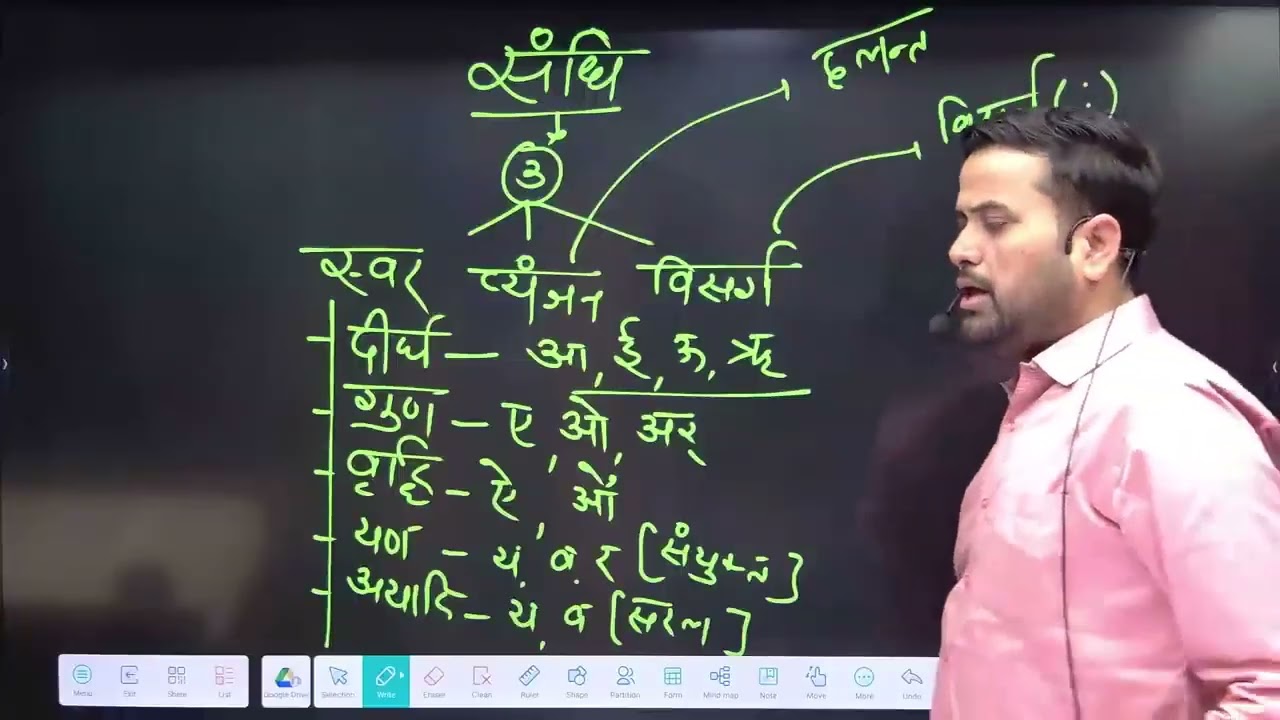 संधि
हलन्त
(ः)
३
स्वर व्यंजन विसर्ग
दीर्घ — आ, ई, ऊ, ऋ
गुण — ए, ओ, अर्
वृद्धि — ऐ, औ
यण — य, व, र [संयुक्त]
अयादि — य, व [सरल]
Menu Exit Share List Google Drive Selection Write Eraser Clean Ruler Shape Partition Form Mind map Note Move More Undo